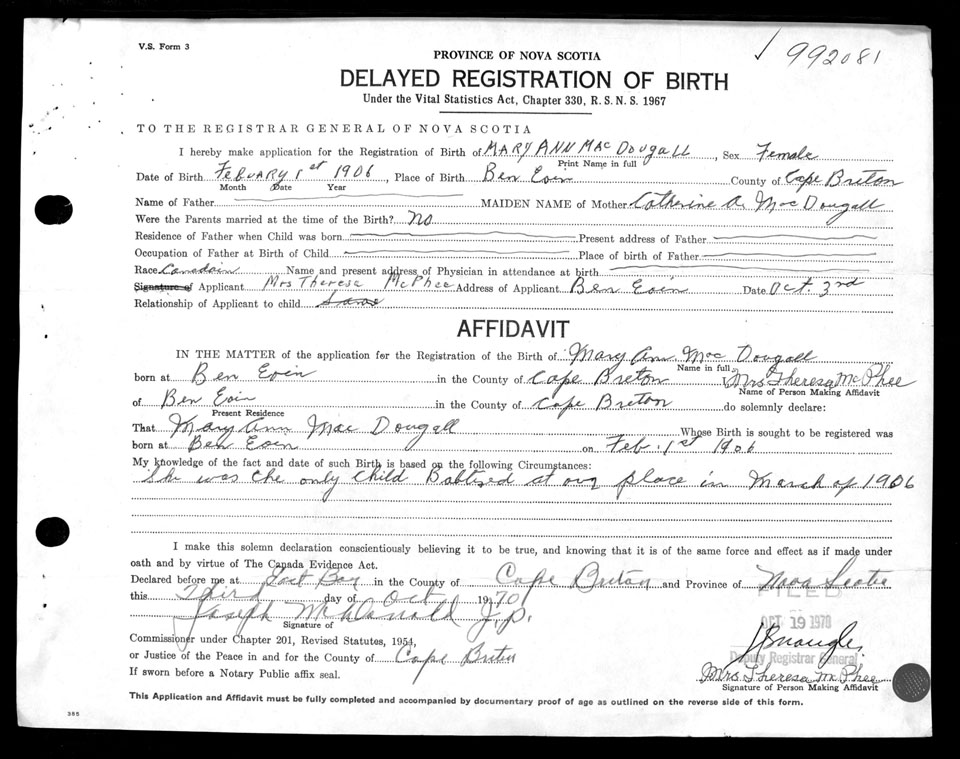 V.S. Form 3
✓ 992081
PROVINCE OF NOVA SCOTIA
DELAYED REGISTRATION OF BIRTH
Under the Vital Statistics Act, Chapter 330, R.S.N.S. 1967
TO THE REGISTRAR GENERAL OF NOVA SCOTIA
I hereby make application for the Registration of Birth of MARY ANN MacDougall, Sex Female
Print Name in full
Date of Birth Febuary 1st 1906, Place of Birth Ben Eoin County of Cape Breton
Month Date Year
Name of Father MAIDEN NAME of Mother Catherine A. MacDougall
Were the Parents married at the time of the Birth? No
Residence of Father when Child was born Present address of Father
Occupation of Father at Birth of Child Place of birth of Father
Race Canadain Name and present address of Physician in attendance at birth
Signature of Applicant Mrs Theresa McPhee Address of Applicant Ben Eoin Date Oct. 3rd
Relationship of Applicant to child
AFFIDAVIT
IN THE MATTER of the application for the Registration of the Birth of Mary Ann Mac Dougall
Name in full
born at Ben Eoin in the County of Cape Breton Mrs Theresa McPhee
Name of Person Making Affidavit
of Ben Eoin in the County of Cape Breton do solemnly declare:
Present Residence
That Mary Ann Mac Dougall Whose Birth is sought to be registered was
born at Ben Eoin on Feb. 1st 1906
My knowledge of the fact and date of such Birth is based on the following Circumstances:
She was the only child Babtized at our place in March of 1906
I make this solemn declaration conscientiously believing it to be true, and knowing that it is of the same force and effect as if made under
oath and by virtue of The Canada Evidence Act.
Declared before me at East Bay in the County of Cape Breton and Province of Nova Scotia
this Third day of Oct 1970
FILED
OCT 19 1970
Joseph McDonald J.P.
Signature of
Commissioner under Chapter 201, Revised Statutes, 1954,
or Justice of the Peace in and for the County of Cape Breton
Deputy Registrar General
If sworn before a Notary Public affix seal.
Mrs. Theresa McPhee
Signature of Person Making Affidavit
This Application and Affidavit must be fully completed and accompanied by documentary proof of age as outlined on the reverse side of this form.
385